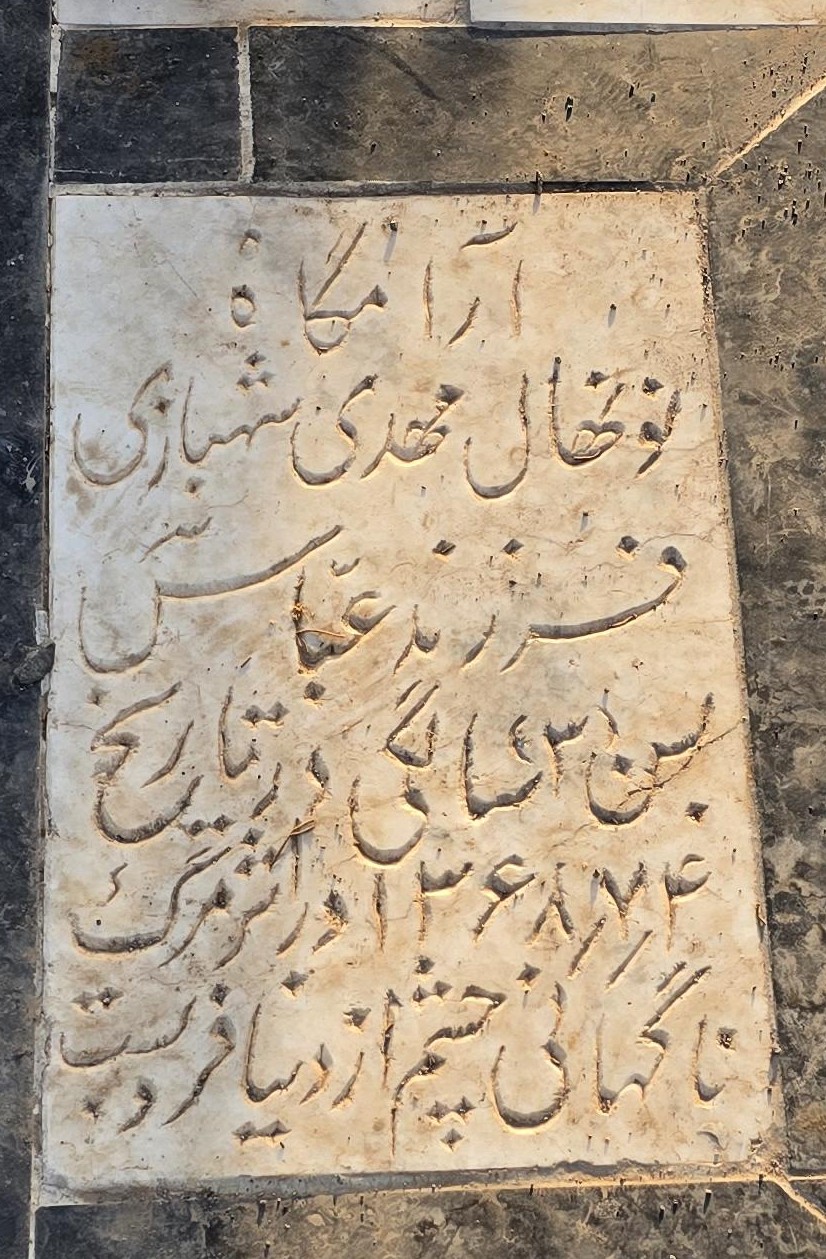 آرامگاه
نونهال مهدی شهبازی
فرزند عبّاس
بسن ۳ سالگی در تاریخ
۱۳۶۸/۷/۴ در اثر مرگ
ناگهانی چشم از دنیا فروبست